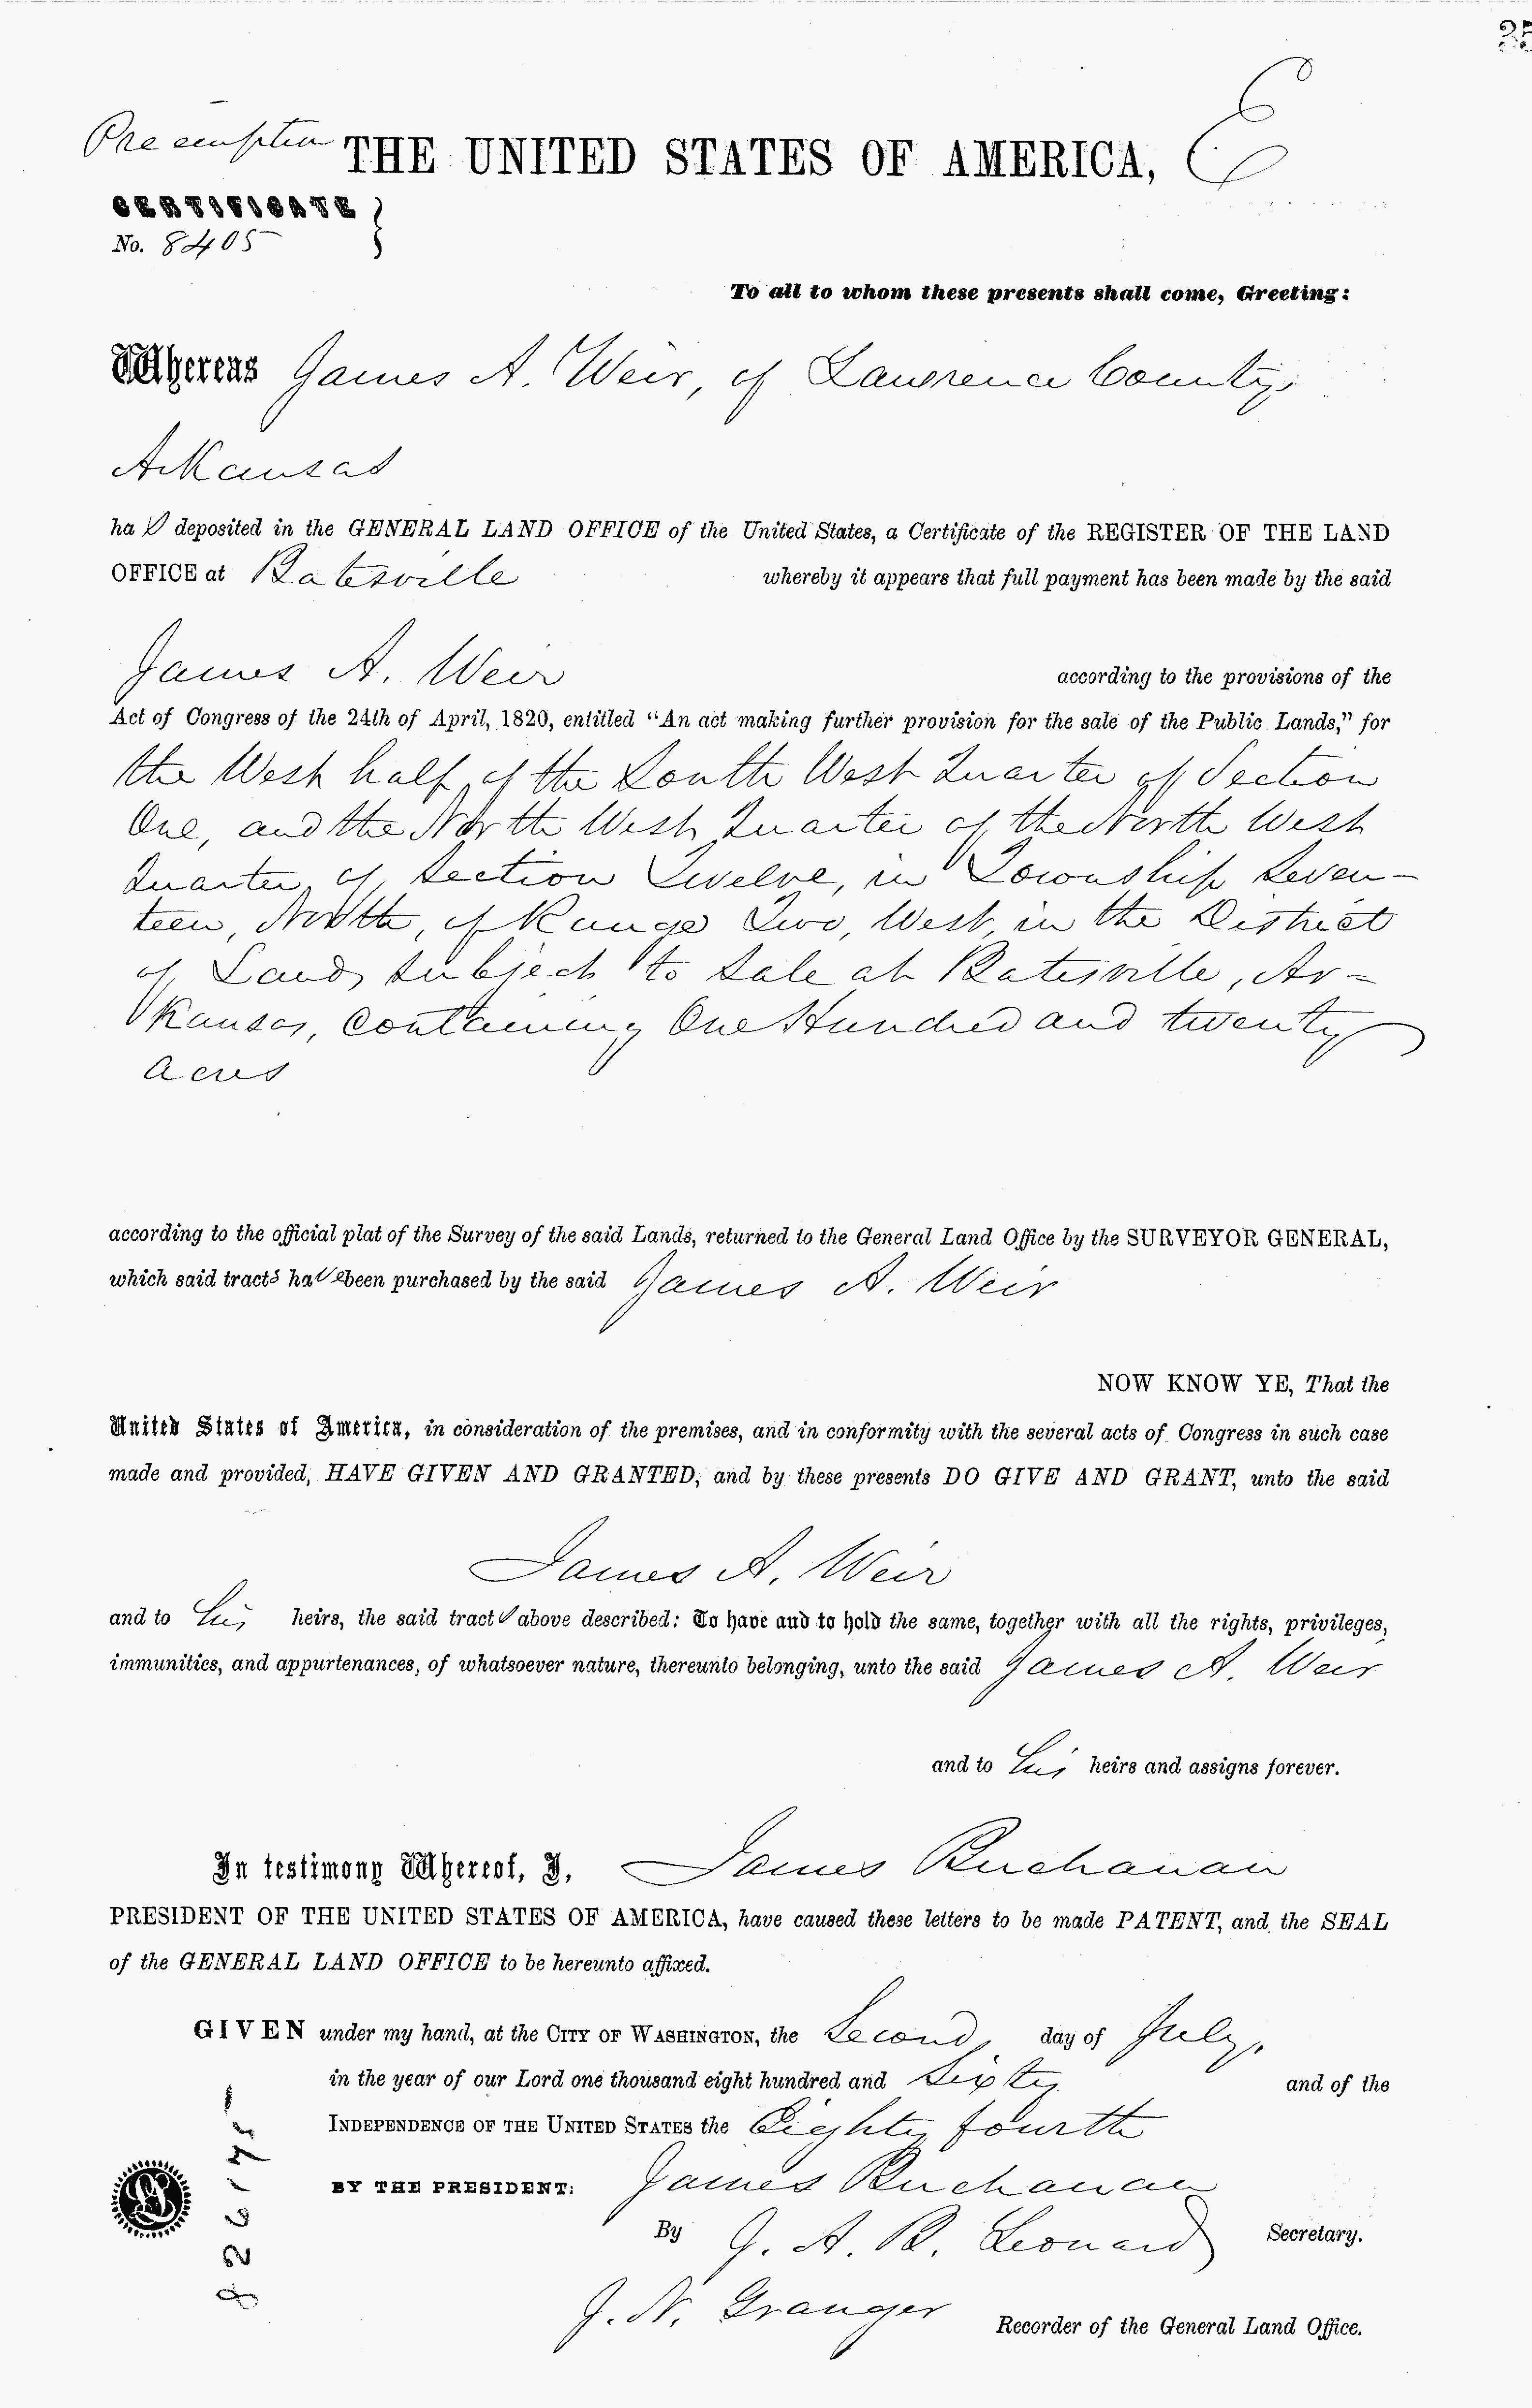 35
Preemption THE UNITED STATES OF AMERICA,
CERTIFICATE
No. 8405
To all to whom these presents shall come, Greeting:
Whereas James A. Weir, of Lawrence County,
Arkansas
ha s deposited in the GENERAL LAND OFFICE of the United States, a Certificate of the REGISTER OF THE LAND
OFFICE at Batesville whereby it appears that full payment has been made by the said
James A. Weir according to the provisions of the
Act of Congress of the 24th of April, 1820, entitled “An act making further provision for the sale of the Public Lands,” for
the West half, of the South West Quarter of Section
One, and the North West Quarter of the North West
Quarter, of Section Twelve, in Township Seven-
teen, North, of Range Two, West, in the District
of Lands subject to sale at Batesville, Ar-
kansas, containing One Hundred and twenty
acres
according to the official plat of the Survey of the said Lands, returned to the General Land Office by the SURVEYOR GENERAL,
which said tracts have been purchased by the said James A. Weir
NOW KNOW YE, That the
United States of America, in consideration of the premises, and in conformity with the several acts of Congress in such case
made and provided, HAVE GIVEN AND GRANTED, and by these presents DO GIVE AND GRANT, unto the said
James A. Weir
and to his heirs, the said tracts above described: To have and to hold the same, together with all the rights, privileges,
immunities, and appurtenances, of whatsoever nature, thereunto belonging, unto the said James A. Weir
and to his heirs and assigns forever.
In testimony Whereof, I, James Buchanan
PRESIDENT OF THE UNITED STATES OF AMERICA, have caused these letters to be made PATENT, and the SEAL
of the GENERAL LAND OFFICE to be hereunto affixed.
GIVEN under my hand, at the CITY OF WASHINGTON, the Second, day of July,
in the year of our Lord one thousand eight hundred and Sixty and of the
INDEPENDENCE OF THE UNITED STATES the Eighty fourth
BY THE PRESIDENT: James Buchanan
By J. A. B. Leonard Secretary.
J. N. Granger Recorder of the General Land Office.